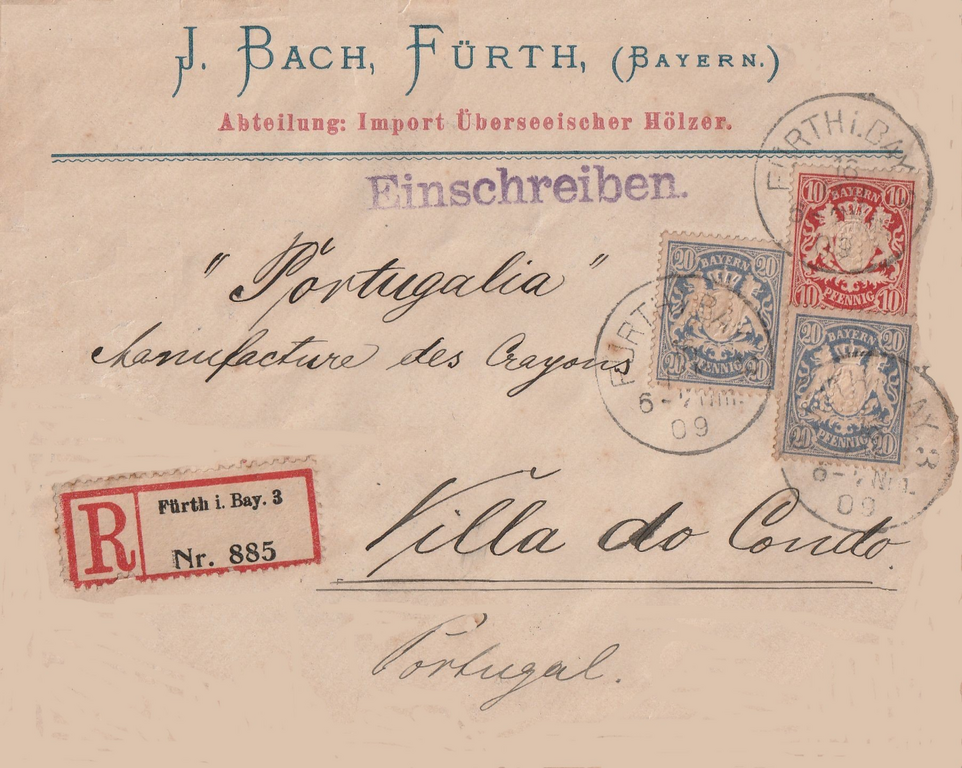 J. BACH, FÜRTH, (BAYERN.)
Abteilung: Import Überseeischer Hölzer.
Einschreiben.
FÜRTH i. BAY.
10 BAYERN 10
PFENNIG
10 10
"Portugalia"
Manufacture des Crayons
20 BAYERN 20
PFENNIG
20 20
FÜRTH i. BAY.
6-7 NM.
09
20 BAYERN 20
PFENNIG
20 20
BAY. 3
6-7 NM.
09
R
Fürth i. Bay. 3
Nr. 885
Villa do Condo.
Portugal.